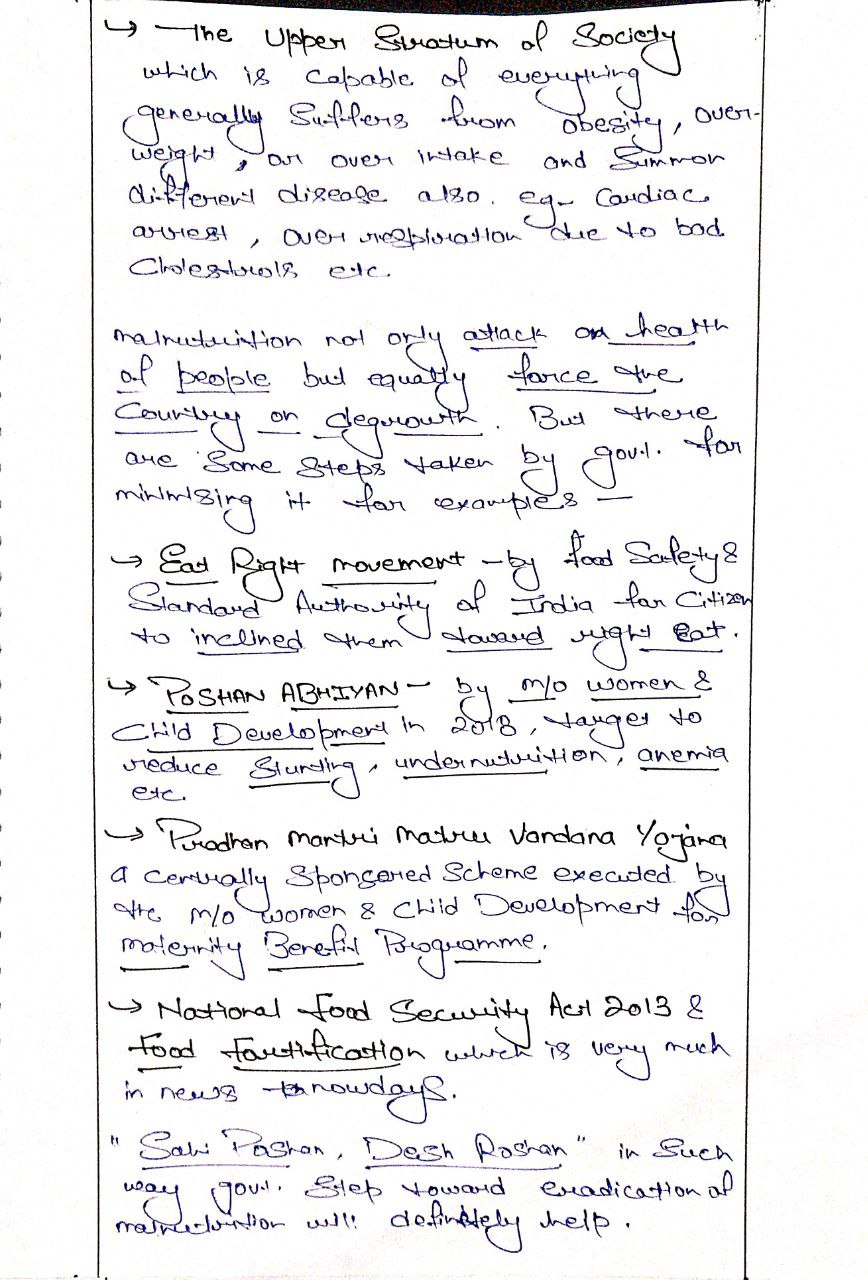 → The Upper Stratum of Society
which is capable of everything
generally Suffers from obesity, over-
weight, or over intake and Summon
different disease also. eg- Cardiac
arrest, over respiration due to bad
Cholestrols etc.
malnutrition not only attack on health
of people but equally force the
Country on degrowth. But there
are Some Steps taken by govt. for
minimising it for examples —
→ Eat Right movement - by food Safety &
Standard Authority of India for Citizen
to inclined them toward right Eat.
→ POSHAN ABHIYAN - by m/o women &
Child Development in 2018, target to
reduce Stunting, undernutrition, anemia
etc.
→ Pradhan mantri matru Vandana Yojana
a centrally Sponsered Scheme executed by
the m/o women & Child Development for
maternity Benefit Programme.
→ National food Security Act 2013 &
food fortification which is very much
in news nowdays.
"Sahi Poshan, Desh Roshan" in Such
way govt. Step toward eradication of
malnutrition will definitely help.